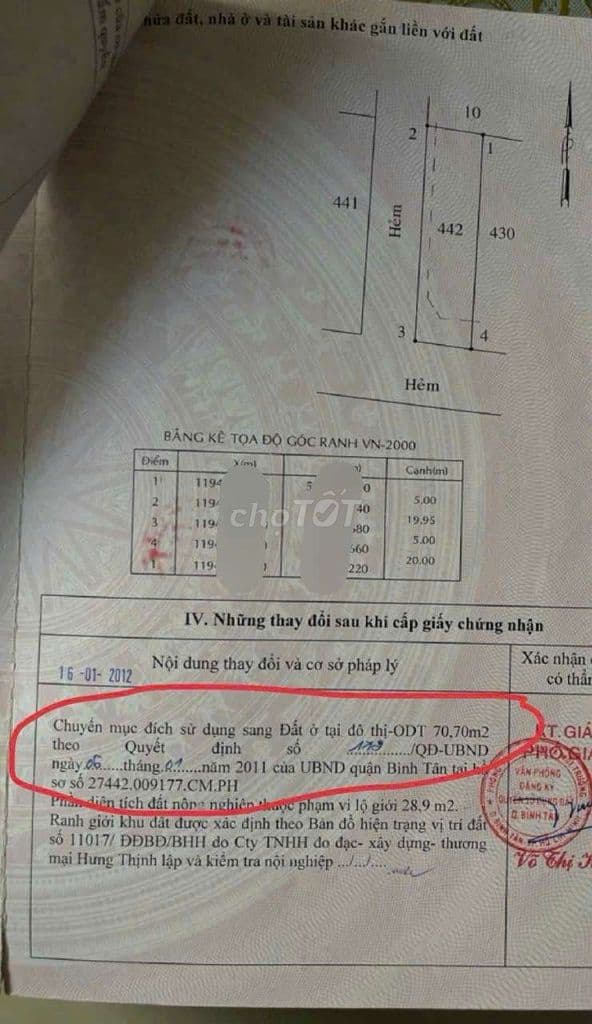 nửa đất, nhà ở và tài sản khác gắn liền với đất
10
2
1
441
Hẻm
442
430
3
4
Hẻm
BẢNG KÊ TỌA ĐỘ GÓC RANH VN-2000
Điểm X(m) Cạnh(m)
1 1194 5 0
5.00
2 1194 40
19.95
3 1194 580
5.00
4 1194 560
20.00
1 1194 220
chợTỐT
IV. Những thay đổi sau khi cấp giấy chứng nhận
Nội dung thay đổi và cơ sở pháp lý
Xác nhận
có thẩ
16-01-2012
Chuyển mục đích sử dụng sang Đất ở tại đô thị-ODT 70,70m2
theo Quyết định số /QĐ-UBND
ngày 06 tháng 01 năm 2011 của UBND quận Bình Tân tại hồ
sơ số 27442.009177.CM.PH
Phần diện tích đất nông nghiệp thuộc phạm vi lộ giới 28,9 m2.
Ranh giới khu đất được xác định theo Bản đồ hiện trạng vị trí đất
số 11017/ ĐĐBĐ/BHH do Cty TNHH đo đạc- xây dựng- thương
mại Hưng Thịnh lập và kiểm tra nội nghiệp ../.../....
KT.GIÁ
PHÓ GIÁ
VĂN PHÒNG
ĐĂNG KÝ
QUYỀN SỬ DỤNG ĐẤT
Q. BÌNH TÂN
Võ Thị